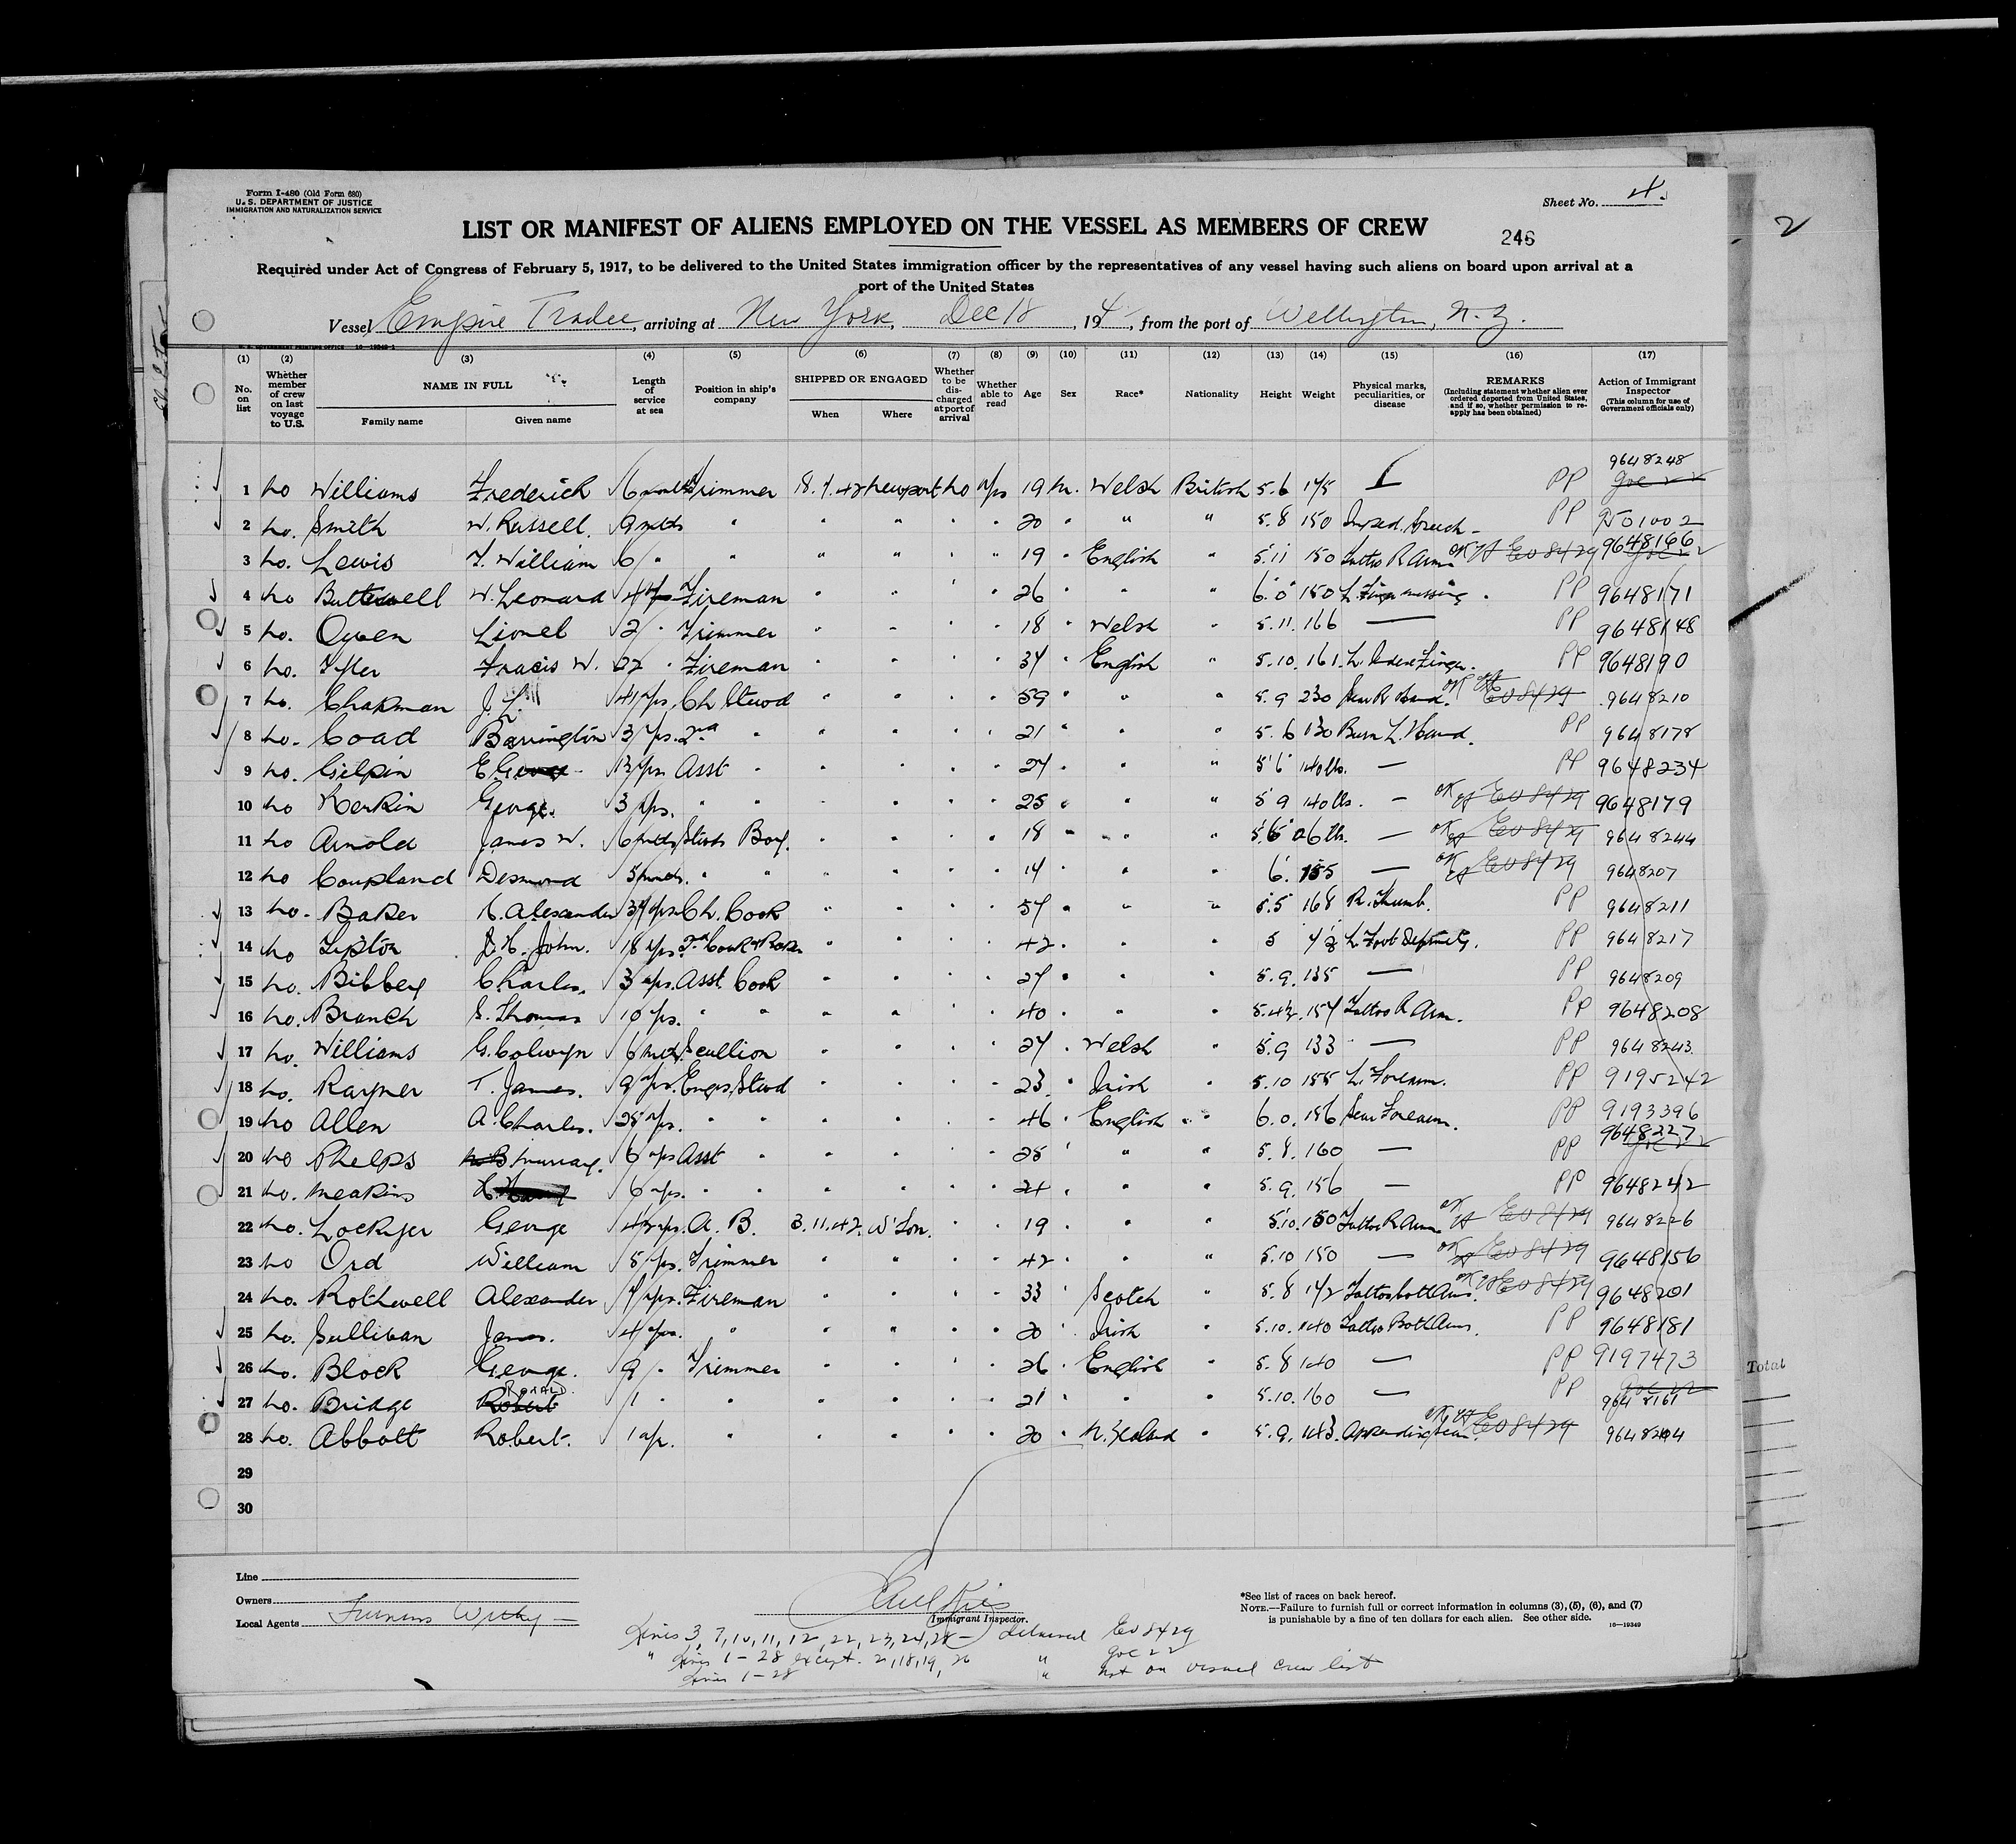 Form I-480 (Old Form 680)
U. S. DEPARTMENT OF JUSTICE
IMMIGRATION AND NATURALIZATION SERVICE
Sheet No. 4.
2
LIST OR MANIFEST OF ALIENS EMPLOYED ON THE VESSEL AS MEMBERS OF CREW
246
Required under Act of Congress of February 5, 1917, to be delivered to the United States immigration officer by the representatives of any vessel having such aliens on board upon arrival at a
port of the United States
Vessel Empire Trader, arriving at New York, Dec 18, 194 , from the port of Wellington, N. Z.
(1) (2) (3) (4) (5) (6) (7) (8) (9) (10) (11) (12) (13) (14) (15) (16) (17)
No. on list
Whether member of crew on last voyage to U.S.
NAME IN FULL
Family name
Given name
Length of service at sea
Position in ship's company
SHIPPED OR ENGAGED
When
Where
Whether to be discharged at port of arrival
Whether able to read
Age
Sex
Race*
Nationality
Height
Weight
Physical marks, peculiarities, or disease
REMARKS
(Including statement whether alien ever ordered deported from United States, and if so, whether permission to reapply has been obtained)
Action of Immigrant Inspector
(This column for use of Government officials only)
1 no Williams Frederick 6 months Trimmer 18.7.42 Newport no yes 19 M. Welsh British 5.6 PP 9648248
2 no. Smith W. Russell. 9 mths " " " " " 20 " " " 5.8 150 PP
3 no. Lewis T. William 6 " " " " " " 19 " English " 5.11 150 Tattoo R Arm OK EO 8429 9648166
4 no Butterwell W. Leonard 4 yrs Fireman " " " " 26 " " " 6.0 150 L. Finger missing. PP 9648171
5 no. Owen Lionel 2 " Trimmer " " " " 18 " Welsh " 5.11. 166 — PP 9648148
6 no. Tyler Fracis W. 22 " Fireman " " " " 34 " English " 5.10. 161. L. Index Finger. PP 9648190
7 no. Chapman J. 41 yrs, Ch Stwd " " " " 59 " " " 5.9 230 Scar R Hand. OK EO 8429 9648210
8 no. Coad Barrington 3 yrs. 2nd " " " " " 21 " " " 5.6 130 Burn L. Hand. PP 9648178
9 no. Gilpin E. George Asst " " " " " " " " 5'6" 140 lbs. — PP 9648234
10 no George. 3 yrs. " " " " " " 25 " " " 5 9 140 lbs. — OK EO 8429 9648179
11 no Arnold James W. 6 mths Stwds Boy. " " " " 18 " " " — OK EO 8429 9648244
12 no Coupland Desmond 5 mnths. " " " " " " " " " 6. — OK EO 8429 9648207
13 no. Baker Alexander Ch. Cook " " " " " " " 5.5 168 R. Thumb. PP 9648211
14 no John. 18 yrs. 2nd Cook & Baker " " " " 42 " " " 5 L. Foot PP 9648217
15 no. Bibbey Charles. 3 yrs. Asst. Cook " " " " " " " 5.9. 135 — PP 9648209
16 no. Branch S. Thomas 10 yrs. " " " " " " 40 " " " Tattoo R Arm. PP 9648208
17 no. Williams G. Colwyn 6 mths Scullion " " " " " Welsh " 5.9 133 — PP 9648243
18 no. Rayner T. James. 9 yrs. Engrs. Stwd " " " " 23. " Irish " 5.10 155 L. Forearm. PP 9195242
19 no Allen A. Charles. 28 yrs. " " " " " " 46 " English " 6.0. 156 Scar Forearm. PP 9193396
20 no Phelps Murray. 6 yrs Asst " " " " " " " " 5.8. 160 — PP 9648227
21 no. Meakins 6 yrs. " " " " " " " " " 5.9. 156 — PP 9648242
22 no. Lockyer George A. B. 3.11.42. W'ton. " " 19 " " " 5.10. 150 Tattoo R Arm OK EO 8429 9648226
23 no Ord William 5 yrs. Trimmer " " " " 42 " " " 5.10 150 — OK EO 8429 9648156
24 no. Rothwell Alexander 7 yrs. Fireman " " " " 33 " Scotch " 5.8 Tattoo both Arms. OK EO 8429 9648201
25 no. Sullivan James. 4 yrs. " " " " " 20 " Irish " 5.10. 140 Tattoo Both Arms. PP 9648181
26 no. Block George. 9 " Trimmer " " " " 26 " English " 5.8 140 — PP 9197473
27 no. Bridge Robert RONALD 1 " " " " " " 21 " " " 5.10. 160 — PP 9648161
28 no. Abbott Robert. 1 yr. " " " " " 20 " N. Zealand " 5.9. 143. Appendix Scar. OK EO 8429
29
30
Total
Line
Owners
Local Agents Furness Withy —
Immigrant Inspector.
*See list of races on back hereof.
NOTE.—Failure to furnish full or correct information in columns (3), (5), (6), and (7)
is punishable by a fine of ten dollars for each alien. See other side.
16—19349
Lines 3, 7, 10, 11, 12, 22, 23, 24, 28 — detained EO 8429
" Lines 1 - 28 except. 2, 18, 19, 26 "
Lines 1 - 28 " not on visaed crew list